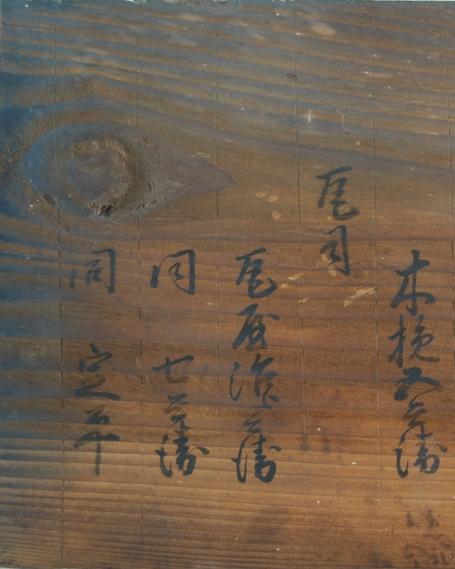 木挽五兵衛
瓦司
瓦屋治兵衛
同 七兵衛
同 定平